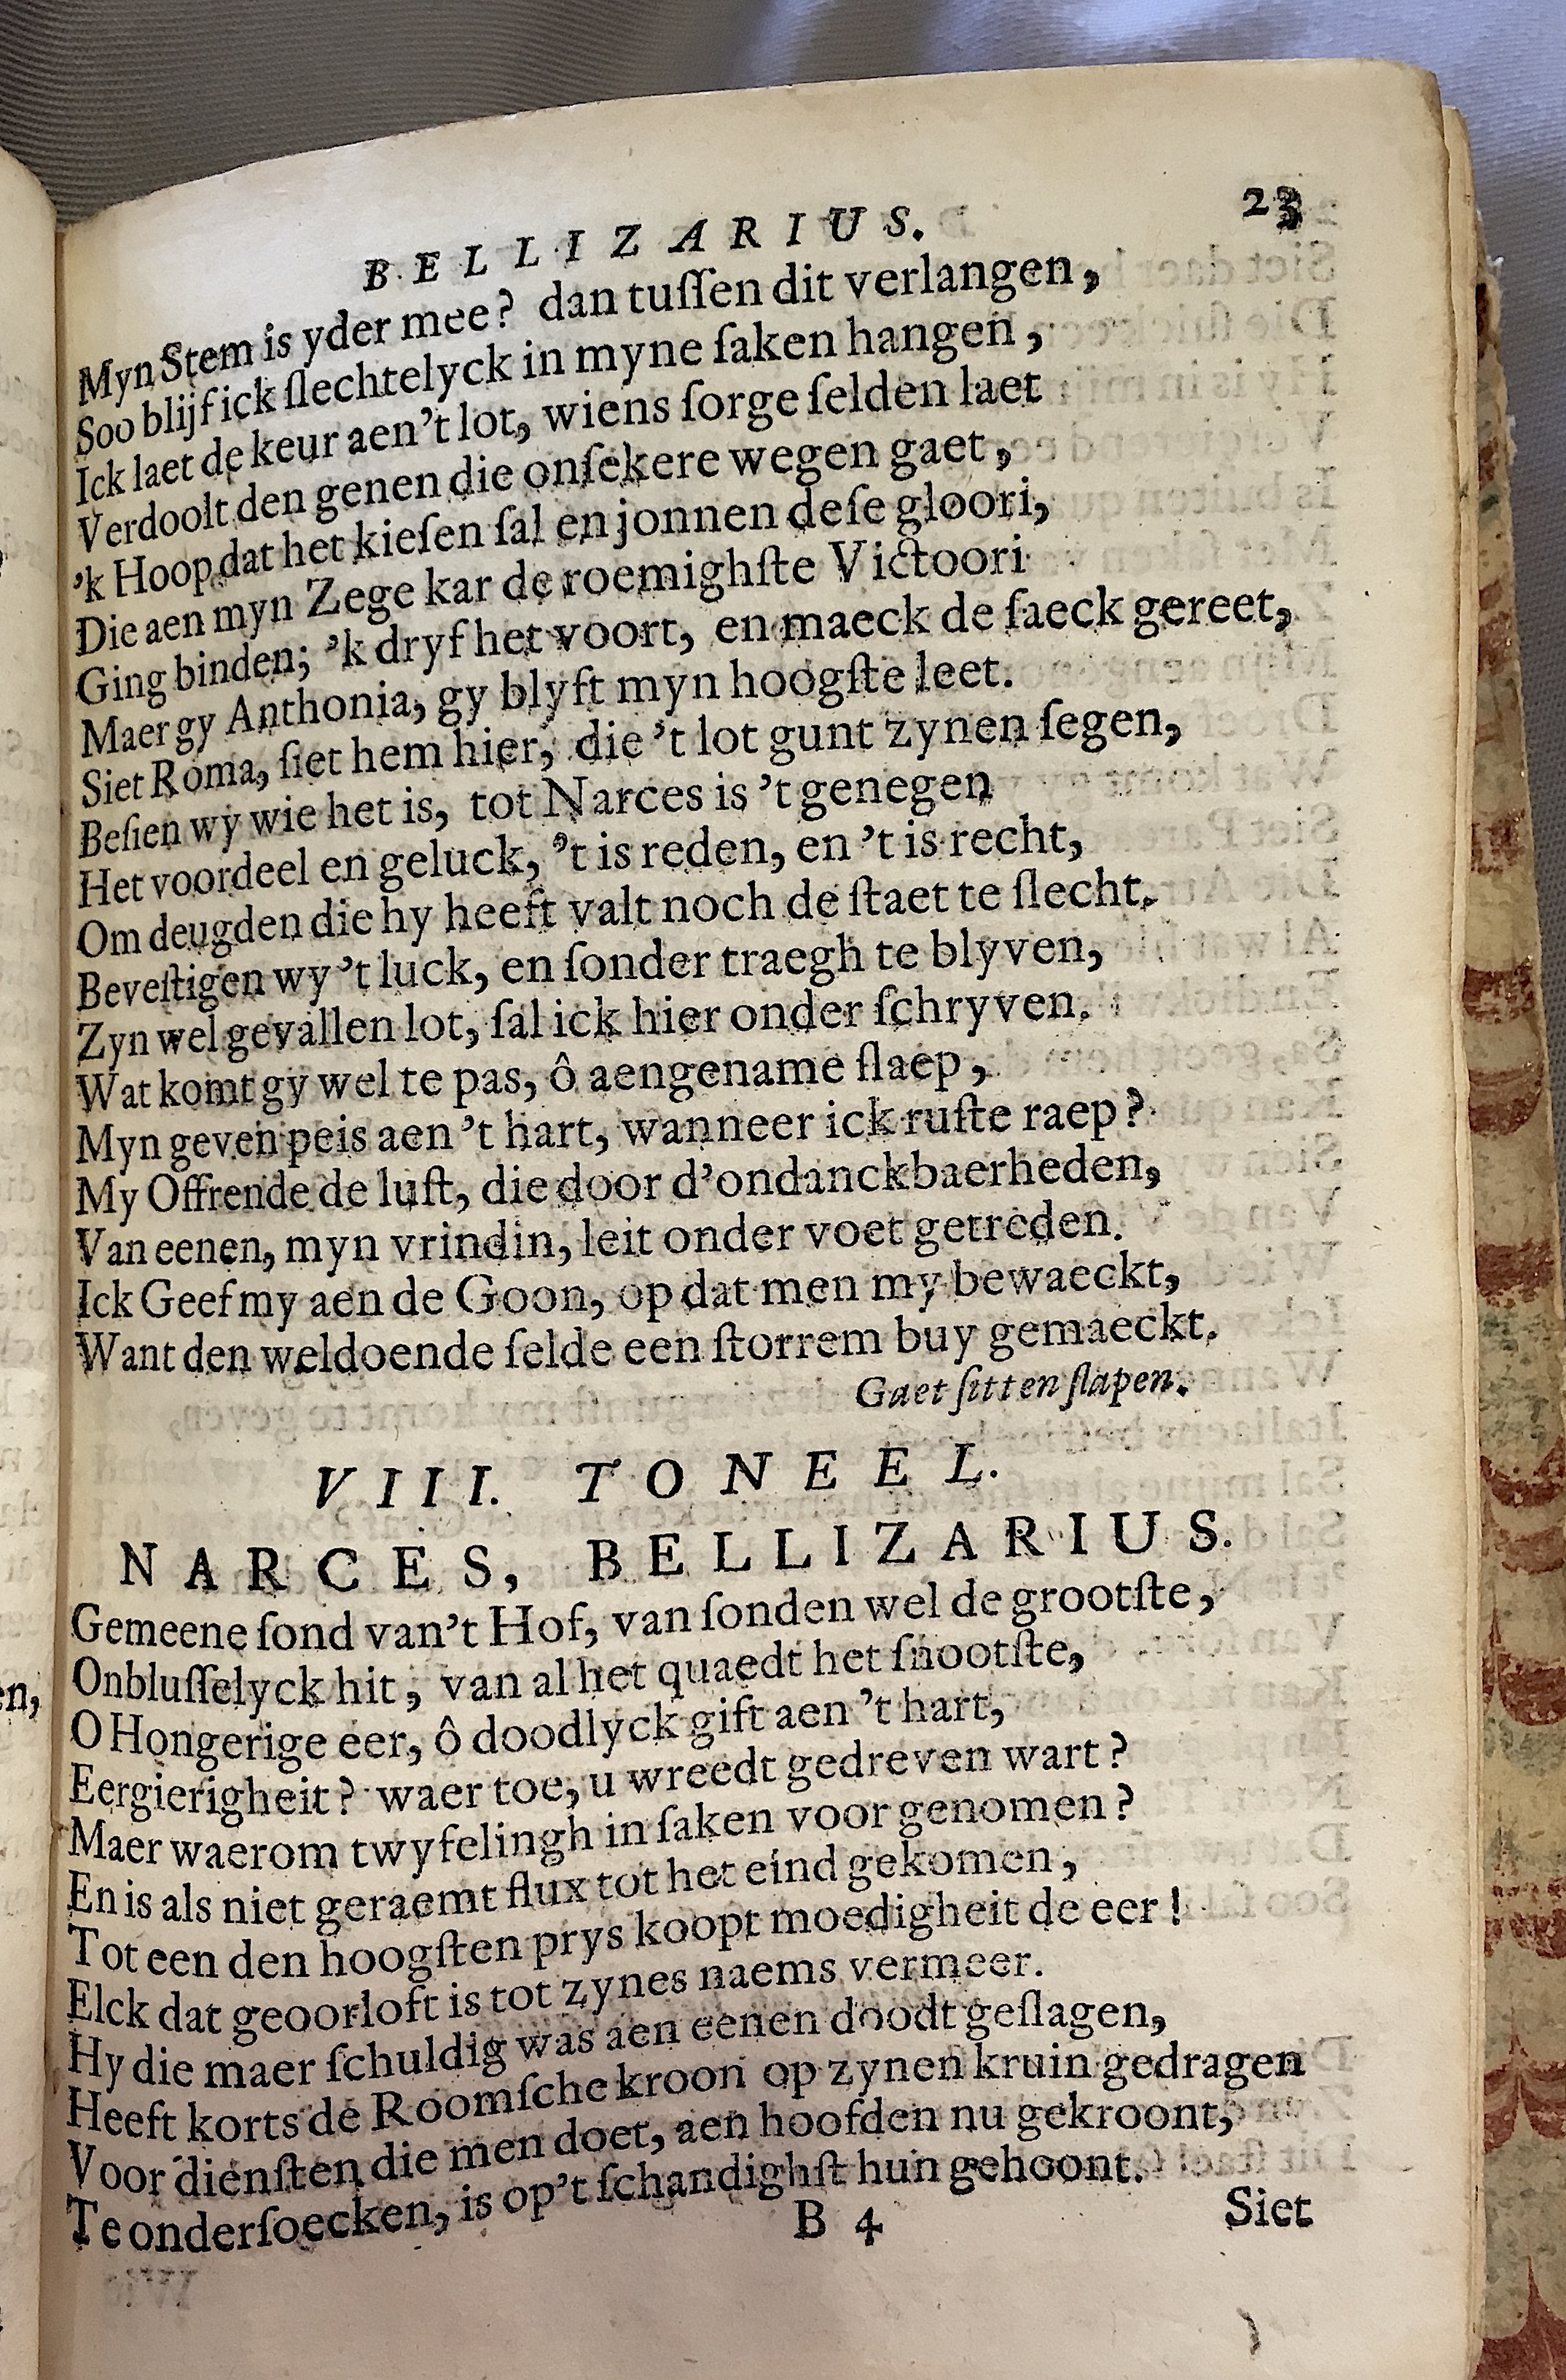 BELLIZARIUS. 23
Myn Stem is yder mee? dan tuſſen dit verlangen,
Soo blijf ick ſlechtelyck in myne ſaken hangen,
Ick laet de keur aen't lot, wiens ſorge ſelden laet
Verdoolt den genen die onſekere wegen gaet,
'k Hoop dat het kieſen ſal en jonnen deſe gloori,
Die aen myn Zege kar de roemighſte Victoori
Ging binden; 'k dryf het voort, en maeck de ſaeck gereet,
Maer gy Anthonia, gy blyft myn hoogſte leet.
Siet Roma, ſiet hem hier, die 't lot gunt zynen ſegen,
Beſien wy wie het is, tot Narces is 't genegen
Het voordeel en geluck, 't is reden, en 't is recht,
Om deugden die hy heeft valt noch de ſtaet te ſlecht.
Beveſtigen wy 't luck, en ſonder traegh te blyven,
Zyn wel gevallen lot, ſal ick hier onder ſchryven.
Wat komt gy wel te pas, ô aengename ſlaep,
Myn geven peis aen 't hart, wanneer ick ruſte raep?
My Offrende de luſt, die door d'ondanckbaerheden,
Van eenen, myn vrindin, leit onder voet getreden.
Ick Geef my aen de Goon, op dat men my bewaeckt,
Want den weldoende ſelde een ſtorrem buy gemaeckt.
Gaet ſitten ſlapen.
VIII. TONEEL.
NARCES, BELLIZARIUS.
Gemeene ſond van't Hof, van ſonden wel de grootſte,
Onbluſſelyck hit, van al het quaedt het ſnootſte,
O Hongerige eer, ô doodlyck gift aen 't hart,
Eergierigheit? waer toe, u wreedt gedreven wart?
Maer waerom twyfelingh in ſaken voor genomen?
En is als niet geraemt flux tot het eind gekomen,
Tot een den hoogſten prys koopt moedigheit de eer!
Elck dat geoorloft is tot zynes naems vermeer.
Hy die maer ſchuldig was aen eenen doodt geſlagen,
Heeft korts de Roomſche kroon op zynen kruin gedragen
Voor dienſten die men doet, aen hoofden nu gekroont,
Te onderſoecken, is op't ſchandighſt hun gehoont.
B 4 Siet